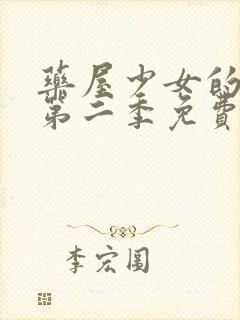 藥屋少女的
第二季免費
李宏圓